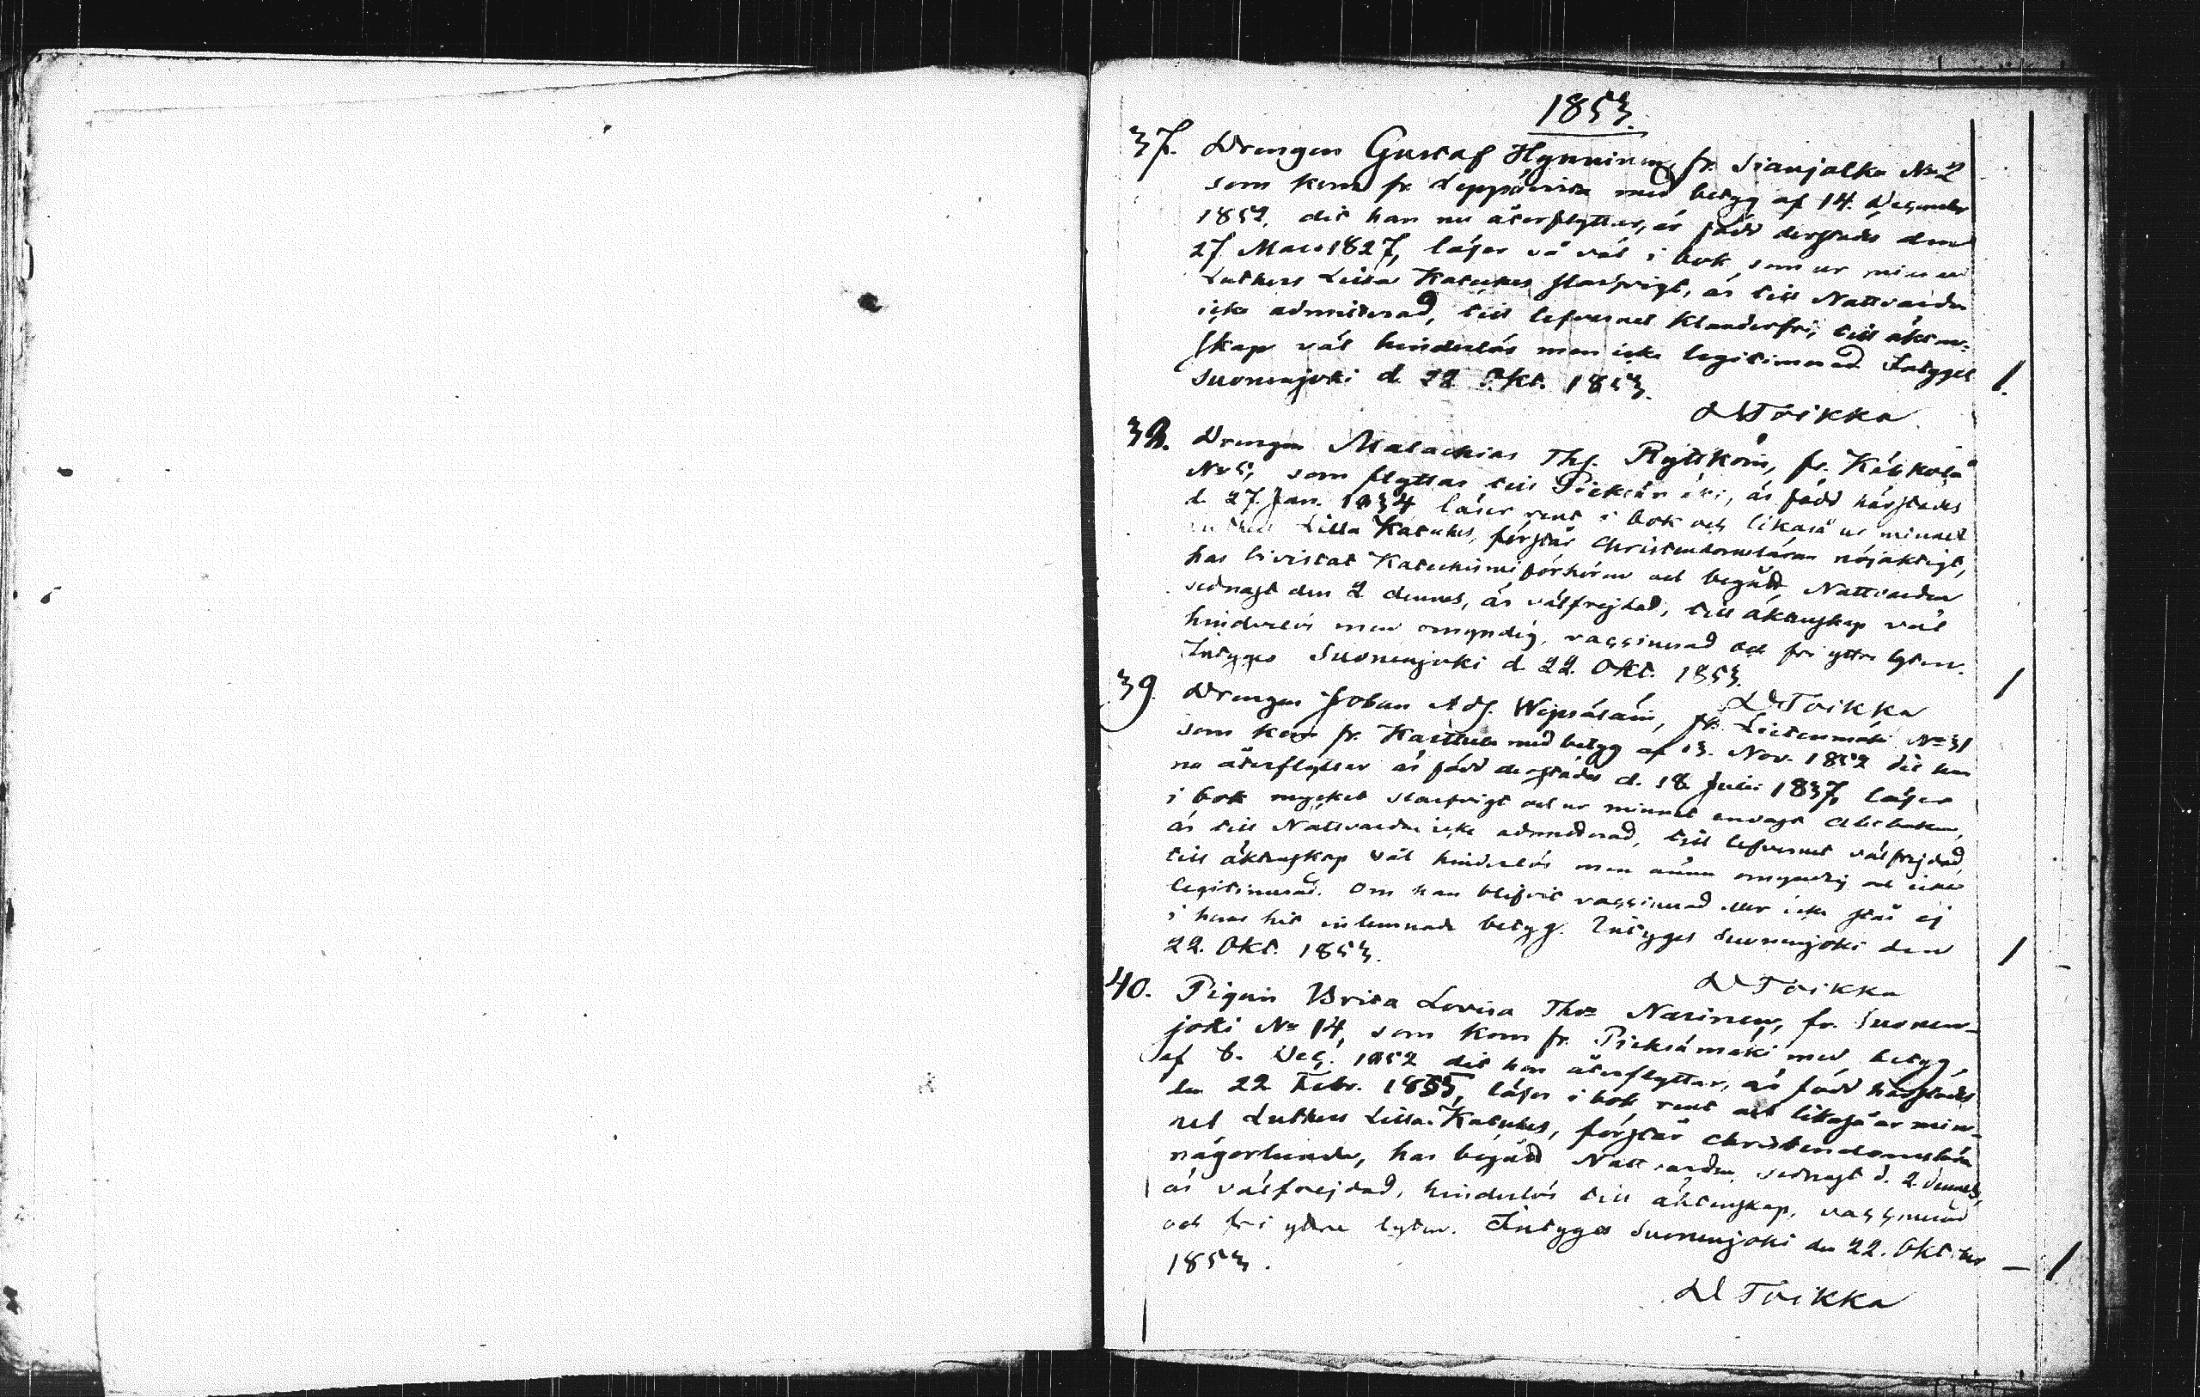 1853.
37. Drengen Gustaf Hynninen, fr. Sianjalka No 2
som kom fr. Leppävirta med betyg af 14. December
1852, dit han nu återflyttar, är född derstädes den
27 Mars 1827, läser så väl i bok, som ur minnet
Luthers Lilla Kateches slarfvigt, är till Nattvarden
icke admitterad, till lefvernet klanderfri, till äkten-
skap väl hinderlös men icke legitimerad. Intygas
Suonenjoki d. 22 Okt. 1853. 1.
D Toikka
38. Drengen Malachias Ths. Rytkön, fr. Kärkkälä
No 5, som flyttar till Pieksämäki, är född härstädes
d. 27 Jan. 1834 läser rent i bok och likaså ur minnet
Luthers Lilla Kateches, förstår Christendomsläran nöjaktigt,
har bivistat Katechismiförhören och begått Nattvarden
sednast den 2 dennes, är välfrejdad, till äktenskap väl
hinderlös men omyndig, vaccinerad och fri yttre lyten.
Intygas Suonenjoki d. 22. Okt. 1853. 1
D Toikka
39 Drengen Johan Adf. Wepsäläin, fr. Lietenmäki No 31
som kom fr. Karttula med betyg af 13. Nov. 1852 dit han
nu återflyttar är född derstädes d. 18 Julii 1837, läser
i bok mycket slarfvigt och ur minnet endast Abcboken,
är till Nattvarden icke admitterad, till lefvernet välfrejdad,
till äktenskap väl hinderlös men ännu omyndig och icke
legitimerad. Om han blifvit vaccinerad eller icke står ej
i hans hit inlemnade betyg. Intygas Suonenjoki den
22. Okt. 1853. 1
D Toikka
40. Pigan Brita Lovisa Thos Narinen, fr. Suonen-
joki No 14, som kom fr. Pieksämäki med betyg
af 6. Dec. 1852 dit hon återflyttar, är född härstädes
den 22 Febr. 1835, läser i bok rent och likaså ur min-
net Luthers Lilla Kateches, förstår christendomsläran
någorlunda, har begått Nattvarden sednast d. 2. dennes,
är välfrejdad, hinderlös till äktenskap, vaccinerad
och fri yttre lyten. Intygas Suonenjoki den 22. Oktober
1853. — 1
D Toikka